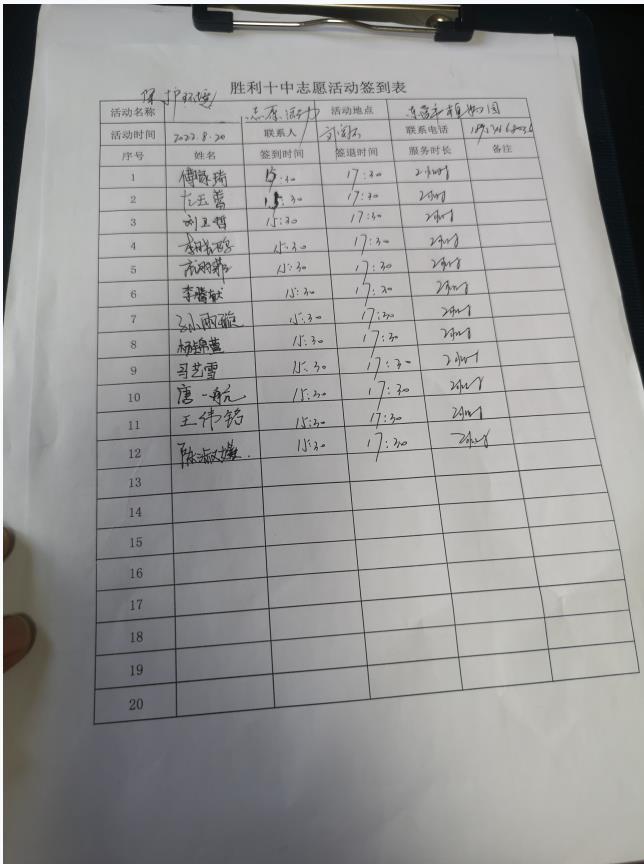 胜利十中志愿活动签到表
保护环境
活动名称 志愿活动 活动地点 东营市植物园
活动时间 2022.8.20 联系人 联系电话
序号 姓名 签到时间 签退时间 服务时长 备注
1 15:30 17:30 2小时
2 15:30 17:30 2小时
3 15:30 17:30 2小时
4 15:30 17:30 2小时
5 15:30 17:30 2小时
6 15:30 17:30 2小时
7 15:30 17:30 2小时
8 杨锦萱 15:30 17:30 2小时
9 马艺雪 15:30 17:30 2小时
10 唐一航 15:30 17:30 2小时
11 王伟铭 15:30 17:30 2小时
12 陈淑媛 15:30 17:30 2小时
13
14
15
16
17
18
19
20